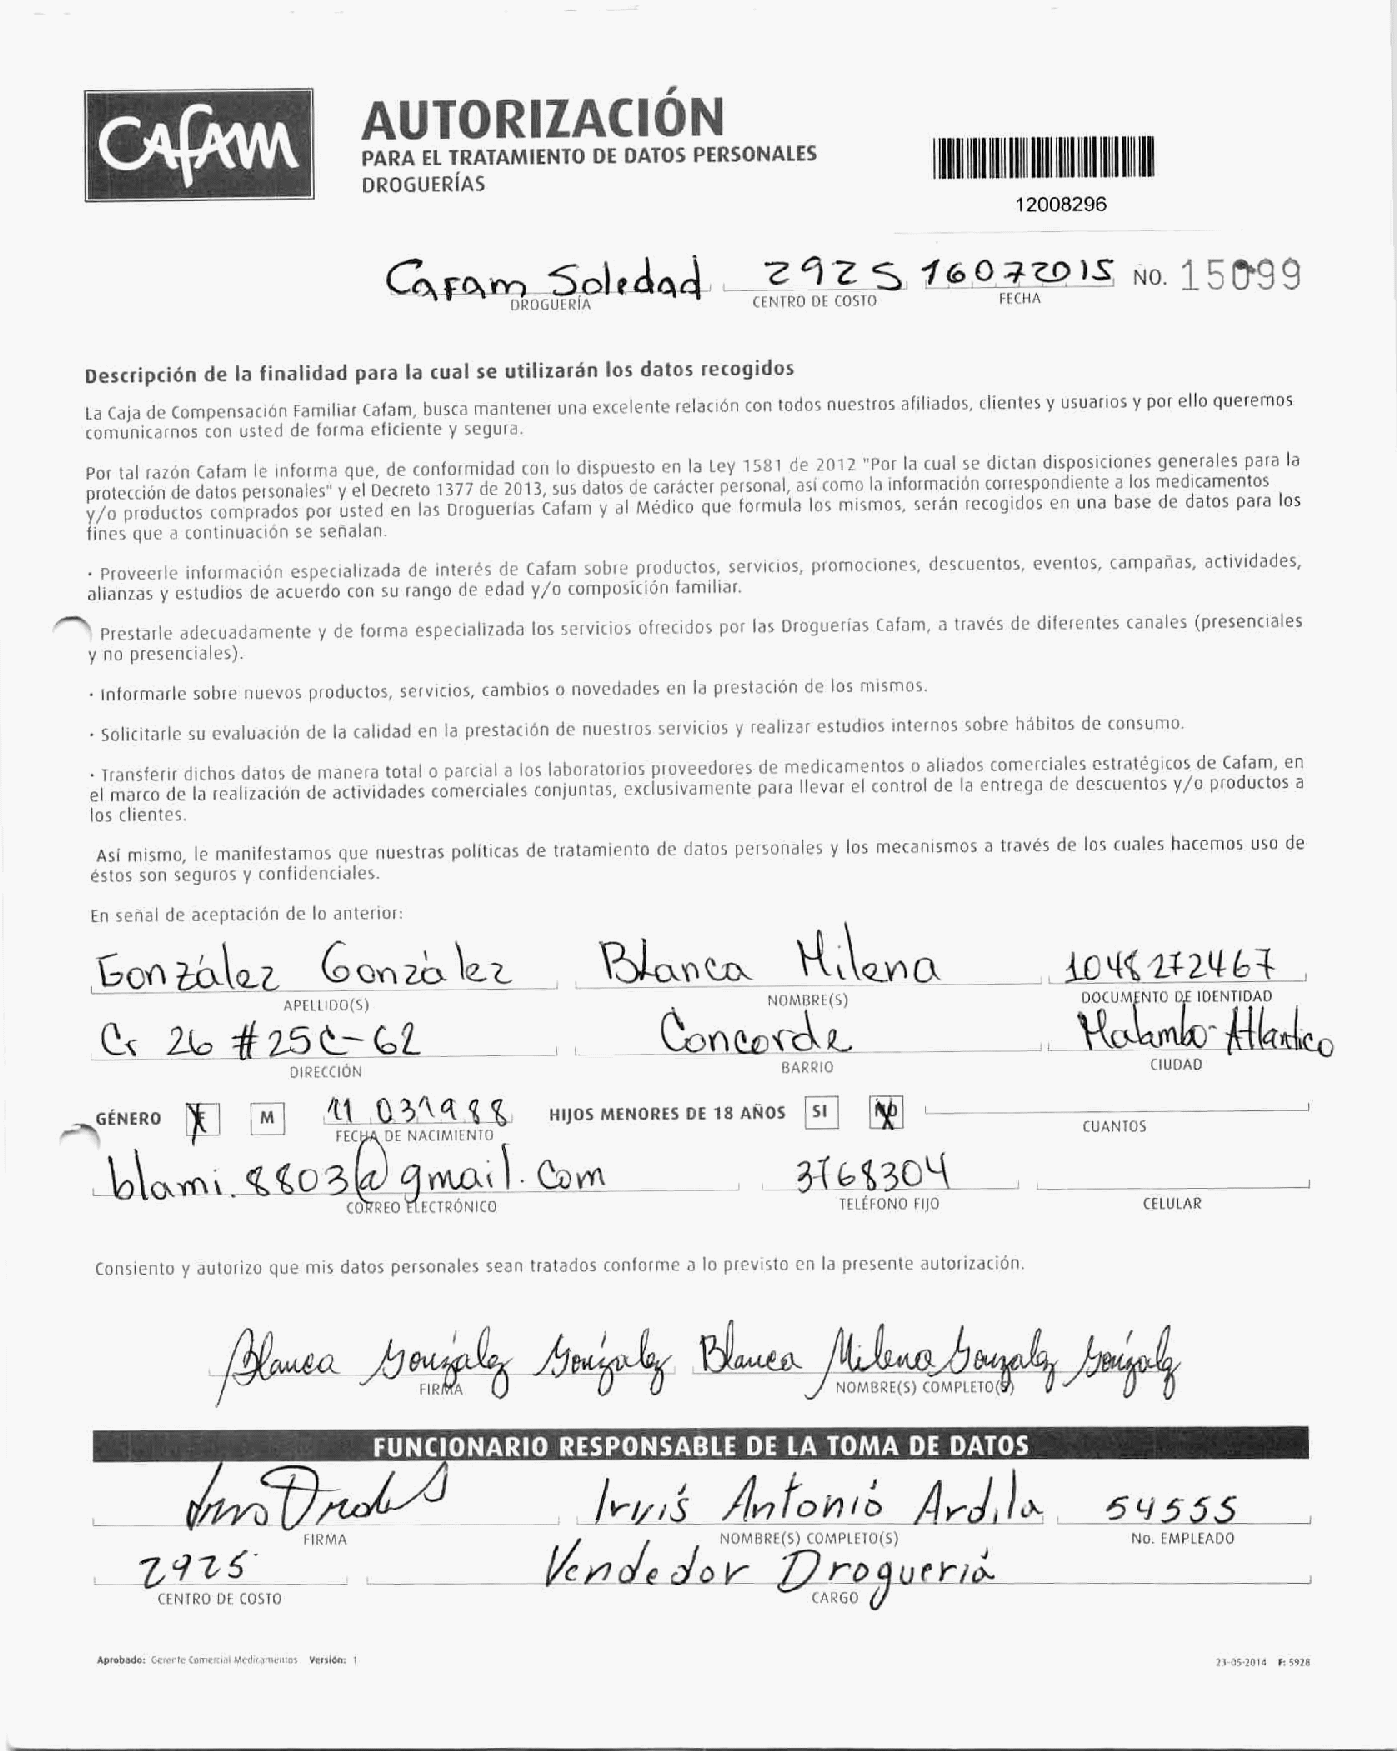 CAFAM
AUTORIZACIÓN
PARA EL TRATAMIENTO DE DATOS PERSONALES
DROGUERÍAS
12008296
Cafam Soledad 2925 16072015 NO. 15099
DROGUERÍA CENTRO DE COSTO FECHA
Descripción de la finalidad para la cual se utilizarán los datos recogidos
La Caja de Compensación Familiar Cafam, busca mantener una excelente relación con todos nuestros afiliados, clientes y usuarios y por ello queremos
comunicarnos con usted de forma eficiente y segura.
Por tal razón Cafam le informa que, de conformidad con lo dispuesto en la Ley 1581 de 2012 "Por la cual se dictan disposiciones generales para la
protección de datos personales" y el Decreto 1377 de 2013, sus datos de carácter personal, así como la información correspondiente a los medicamentos
y/o productos comprados por usted en las Droguerías Cafam y al Médico que formula los mismos, serán recogidos en una base de datos para los
fines que a continuación se señalan.
· Proveerle información especializada de interés de Cafam sobre productos, servicios, promociones, descuentos, eventos, campañas, actividades,
alianzas y estudios de acuerdo con su rango de edad y/o composición familiar.
Prestarle adecuadamente y de forma especializada los servicios ofrecidos por las Droguerías Cafam, a través de diferentes canales (presenciales
y no presenciales).
· Informarle sobre nuevos productos, servicios, cambios o novedades en la prestación de los mismos.
· Solicitarle su evaluación de la calidad en la prestación de nuestros servicios y realizar estudios internos sobre hábitos de consumo.
· Transferir dichos datos de manera total o parcial a los laboratorios proveedores de medicamentos o aliados comerciales estratégicos de Cafam, en
el marco de la realización de actividades comerciales conjuntas, exclusivamente para llevar el control de la entrega de descuentos y/o productos a
los clientes.
Así mismo, le manifestamos que nuestras políticas de tratamiento de datos personales y los mecanismos a través de los cuales hacemos uso de
éstos son seguros y confidenciales.
En señal de aceptación de lo anterior:
González González Blanca Milena 1048272467
APELLIDO(S) NOMBRE(S) DOCUMENTO DE IDENTIDAD
Cr 26 #25C-62 Concorde Malambo-Atlantico
DIRECCIÓN BARRIO CIUDAD
GÉNERO F M 11 03 1988 HIJOS MENORES DE 18 AÑOS SI NO
FECHA DE NACIMIENTO CUANTOS
blami.8803@gmail.com 3768304
CORREO ELECTRÓNICO TELÉFONO FIJO CELULAR
Consiento y autorizo que mis datos personales sean tratados conforme a lo previsto en la presente autorización.
Blanca González González Blanca Milena González González
FIRMA NOMBRE(S) COMPLETO(S)
FUNCIONARIO RESPONSABLE DE LA TOMA DE DATOS
Irvis Antonio Ardila 54555
FIRMA NOMBRE(S) COMPLETO(S) No. EMPLEADO
2925 Vendedor Drogueria
CENTRO DE COSTO CARGO
Aprobado: Gerente Comercial Medicamentos Versión: 1 23-05-2014 F: 5928